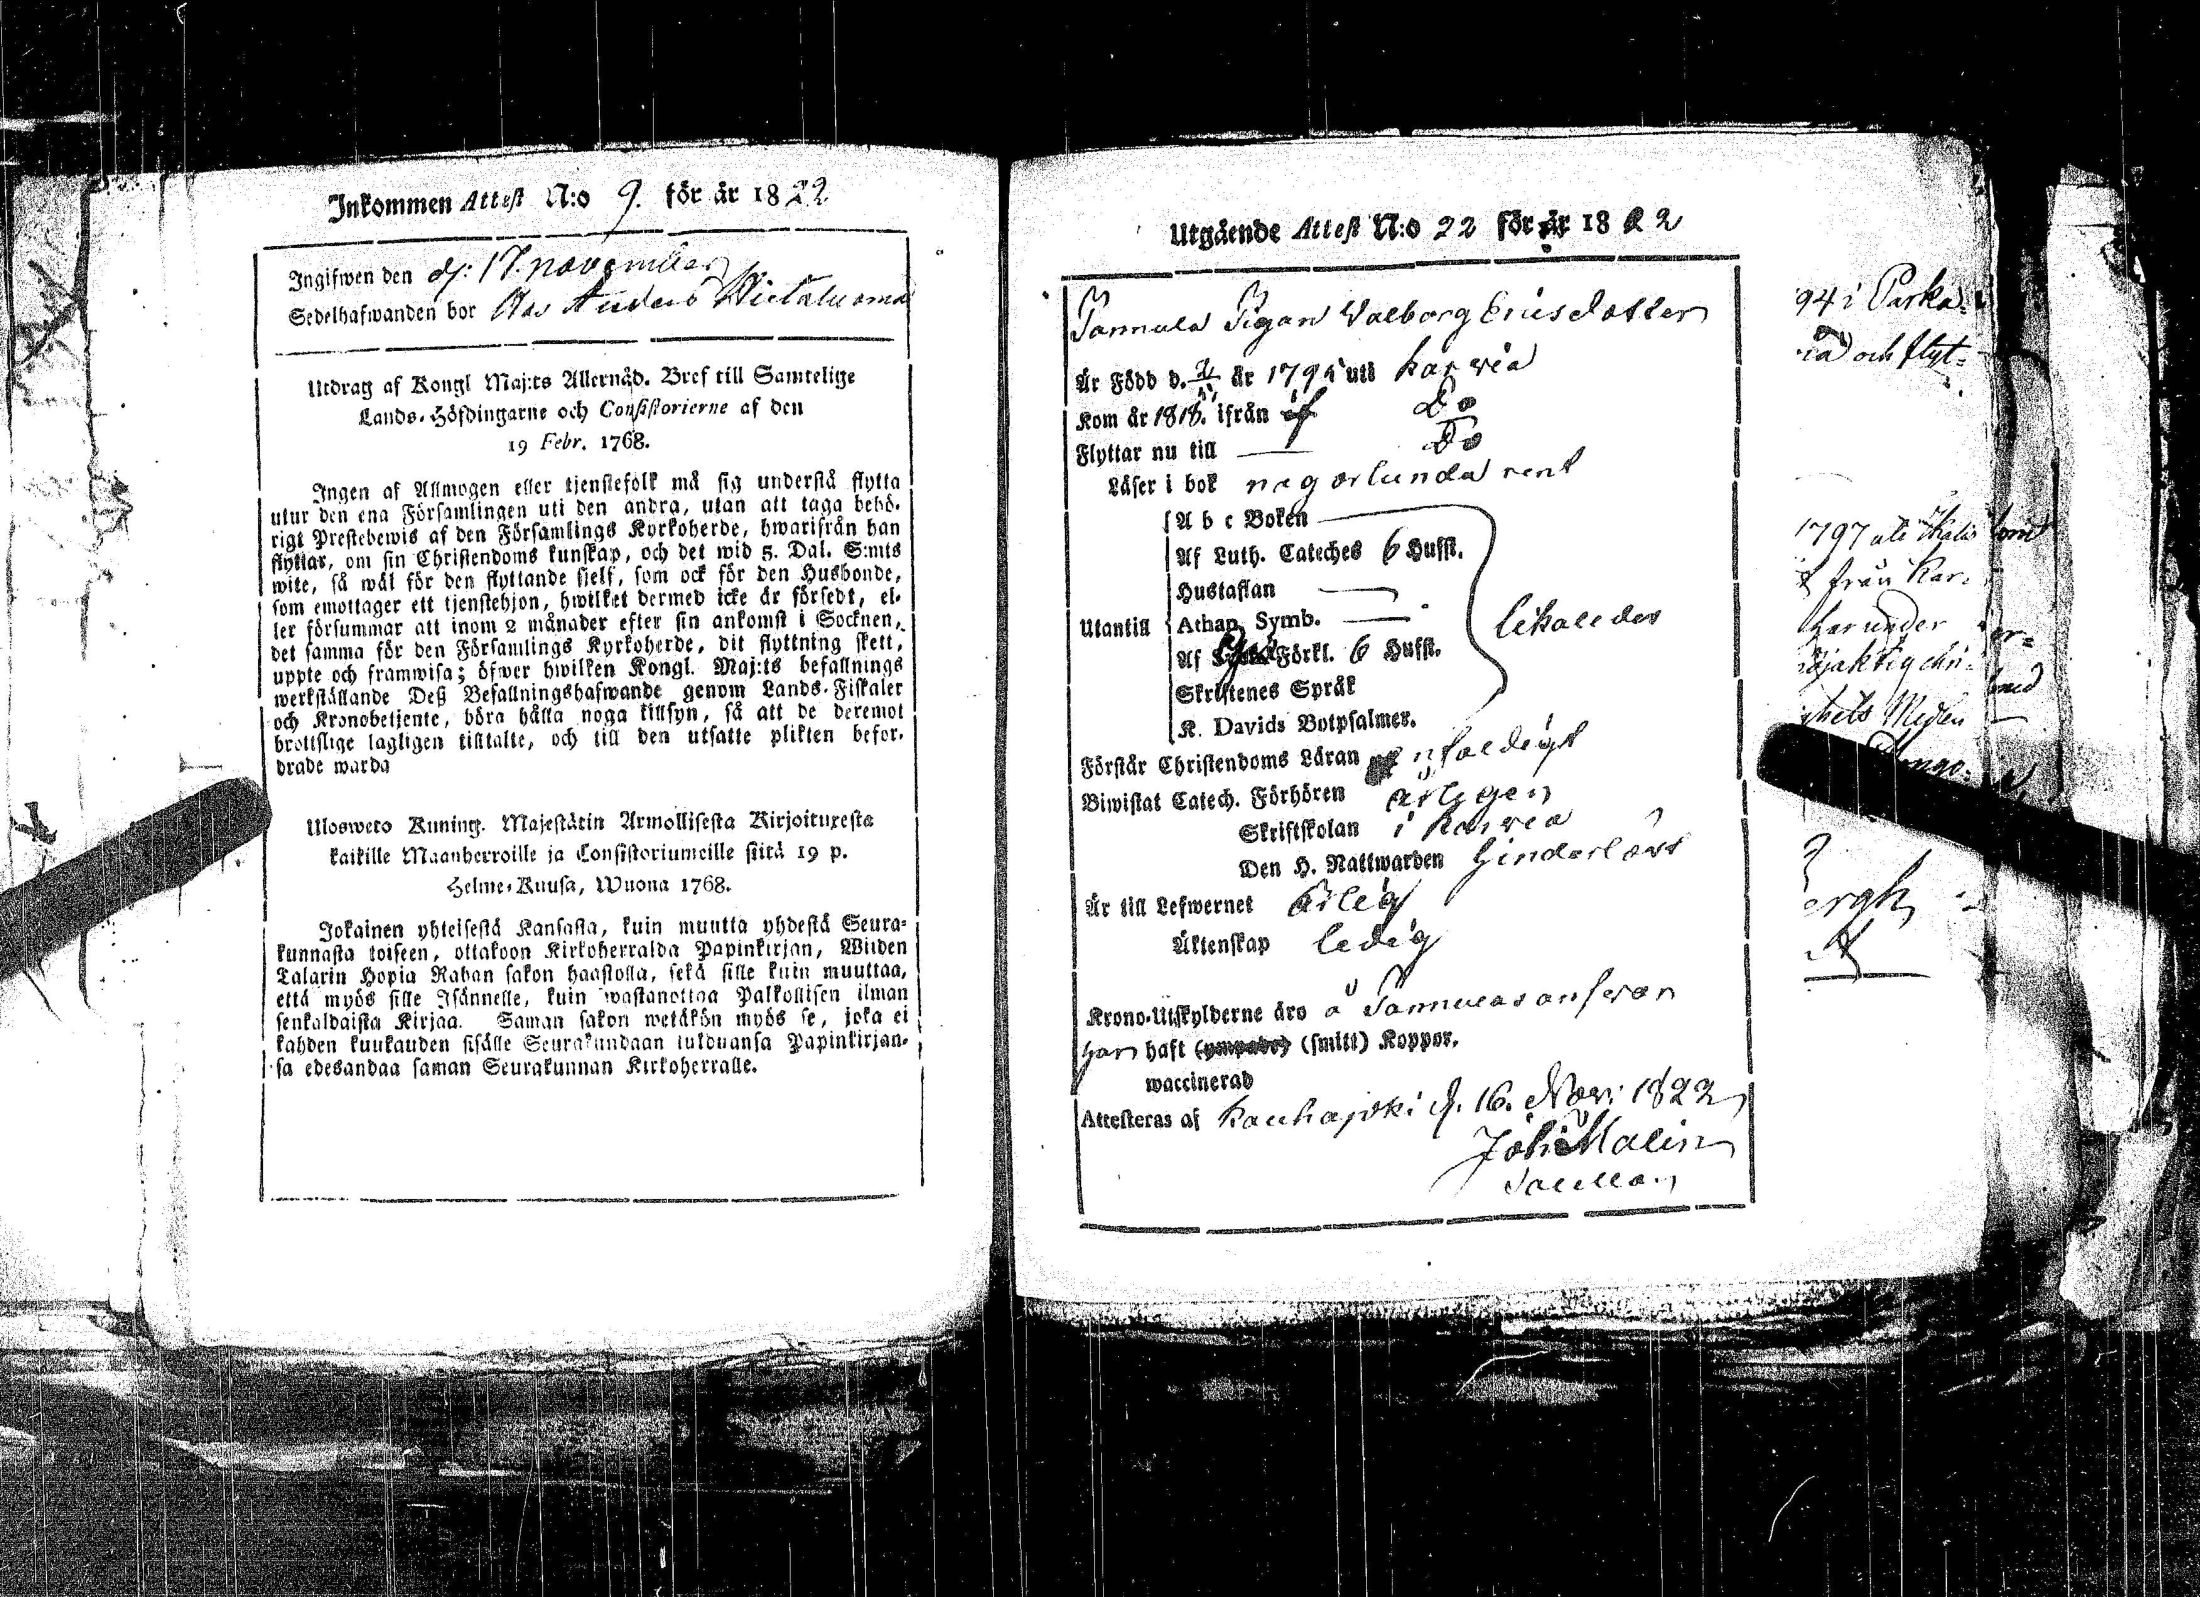 Inkommen Attest N:o 9. för år 1822
Ingifwen den d: 17. november
Sedelhafwanden bor hos Anders Hietaluoma
Utdrag af Kongl Maj:ts Allernåd. Bref till Samtelige
Lands-Höfdingarne och Consistorierne af den
19 Febr. 1768.
Ingen af Allmogen eller tjenstefolk må sig understå flytta
utur den ena Församlingen uti den andra, utan att taga behö-
rigt Prestebewis af den Församlings Kyrkoherde, hwarifrån han
flyttar, om sin Christendoms kunskap, och det wid 5. Dal. S:mts
wite, så wäl för den flyttande sielf, som ock för den Husbonde,
som emottager ett tjenstehjon, hwilket dermed icke är försedt, el-
ler försummar att inom 2 månader efter sin ankomst i Socknen,
det samma för den Församlings Kyrkoherde, dit flyttning skett,
uppte och framwisa; öfwer hwilken Kongl. Maj:ts befallnings
werkställande Deß Befallningshafwande genom Lands-Fiskaler
och Kronobetjente, böra hålla noga tillsyn, så att de deremot
brottslige lagligen tilltalte, och till den utsatte plikten befor-
drade warda
Ulosweto Kuning. Majestätin Armollisesta Kirjoituxesta
kaikille Maanherroille ja Consistoriumeille siitä 19 p.
Helme-Kuusa, Wuona 1768.
Jokainen yhteisestä Kansasta, kuin muutta yhdestä Seura-
kunnasta toiseen, ottakoon Kirkoherralda Papinkirjan, Wiiden
Talarin Hopia Rahan sakon haastolla, sekä sille kuin muuttaa,
että myös sille Isännelle, kuin wastanottaa Palkollisen ilman
senkaldaista Kirjaa. Saman sakon wetäkön myös se, joka ei
kahden kuukauden sisälle Seurakundaan tulduansa Papinkirjan-
sa edesandaa saman Seurakunnan Kirkoherralle.
Utgående Attest N:o 22 för år 1822
Pannula Pigan Valborg Ericsdotter
Är Född d. år 1795 uti Karvia
Kom år 1818. ifrån Do
Flyttar nu till — Do
Läser i bok någorlunda rent
A b c Boken
Af Luth. Cateches 6 Hufst.
Hustaflan
Athan. Symb.
Utantill likaledes
Af Förkl. 6 Hufst.
Skriftenes Språk
K. Davids Botpsalmer.
Förstår Christendoms Läran enfaldigt
Biwistat Catech. Förhören årligen
Skriftskolan i Karvia
Den H. Nattwarden hinderlöst
Är till Lefwernet ärlig
Äktenskap ledig
Krono-Utskylderne äro å Pannulas ansvar
har haft (ympade) (smitt) Koppor.
waccinerad
Attesteras af Kauhajoki d. 16. Nov: 1822
Joh: Malin
94 i Parka-
och flyt-
1797 uti
från Kar-
har under